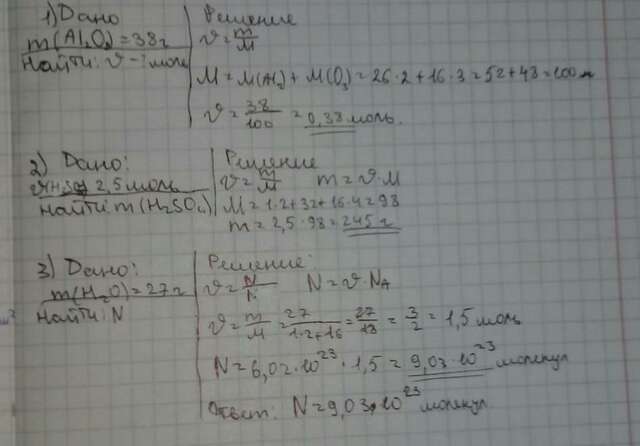 1) Дано
m(Al₂O₃)=38г
Найти: ν-? моль
Решение
ν=m/M
M=M(Al₂)+M(O₃)=26·2+16·3=52+48=100
ν=38/100=0,38 моль.
2) Дано:
ν(H₂SO₄) 2,5 моль
Найти: m(H₂SO₄)
Решение
ν=m/M m=ν·M
M=1·2+32+16·4=98
m=2,5·98=245г
3) Дано:
m(H₂O)=27г
Найти: N
Решение:
ν=N/N N=ν·Nₐ
ν=m/M=27/1·2+16=27/18=3/2=1,5 моль
N=6,02·10²³·1,5=9,03·10²³ молекул
Ответ: N=9,03·10²³ молекул.